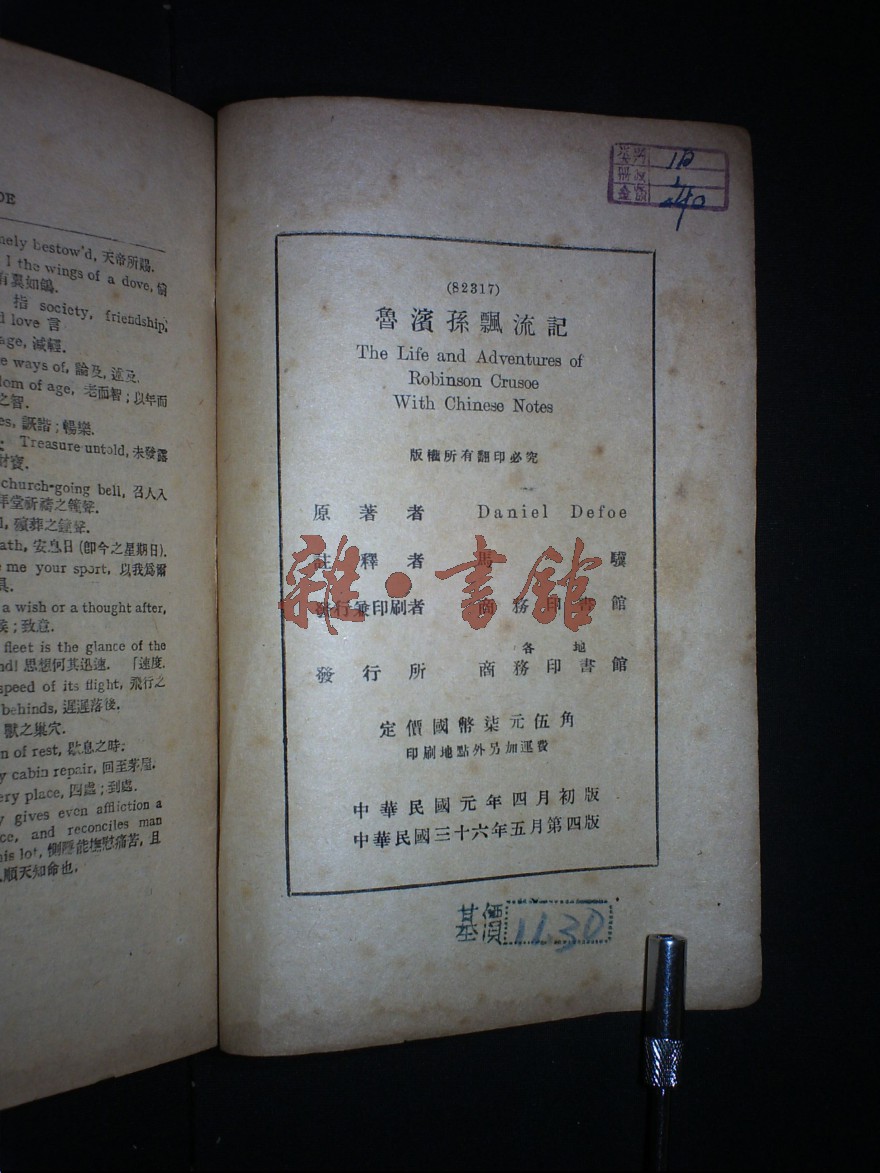 OE
nely bestow'd, 天帝所賜.
I the wings of a dove, 倘
有翼如鴿.
指 society, friendship,
d love 言
age, 減輕.
e ways of, 論及, 述及.
dom of age, 老而智；以年而
之智.
es, 詼諧；暢樂.
Treasure untold, 未發露
財寶.
church-going bell, 召人入
拜堂祈禱之鐘聲.
殯葬之鐘聲.
ath, 安息日 (卽今之星期日).
e me your sport, 以我爲爾
具.
a wish or a thought after,
矣；致意.
fleet is the glance of the
nd! 思想何其迅速. 「速度.
speed of its flight, 飛行之
behinds, 遲遲落後.
獸之巢穴.
n of rest, 歇息之時.
y cabin repair, 回至茅屋.
ery place, 四處；到處.
y gives even affliction a
ce, and reconciles man
his lot, 惻隱能撫慰痛苦, 且
順天知命也.
類
1B
冊數
1
金額
(82317)
魯濱孫飄流記
The Life and Adventures of
Robinson Crusoe
With Chinese Notes
版權所有翻印必究
原著者 Daniel Defoe
註釋者 馬驥
發行兼印刷者 商務印書館
各地
發行所 商務印書館
定價國幣柒元伍角
印刷地點外另加運費
中華民國元年四月初版
中華民國三十六年五月第四版
基價 11.30
雜·書館